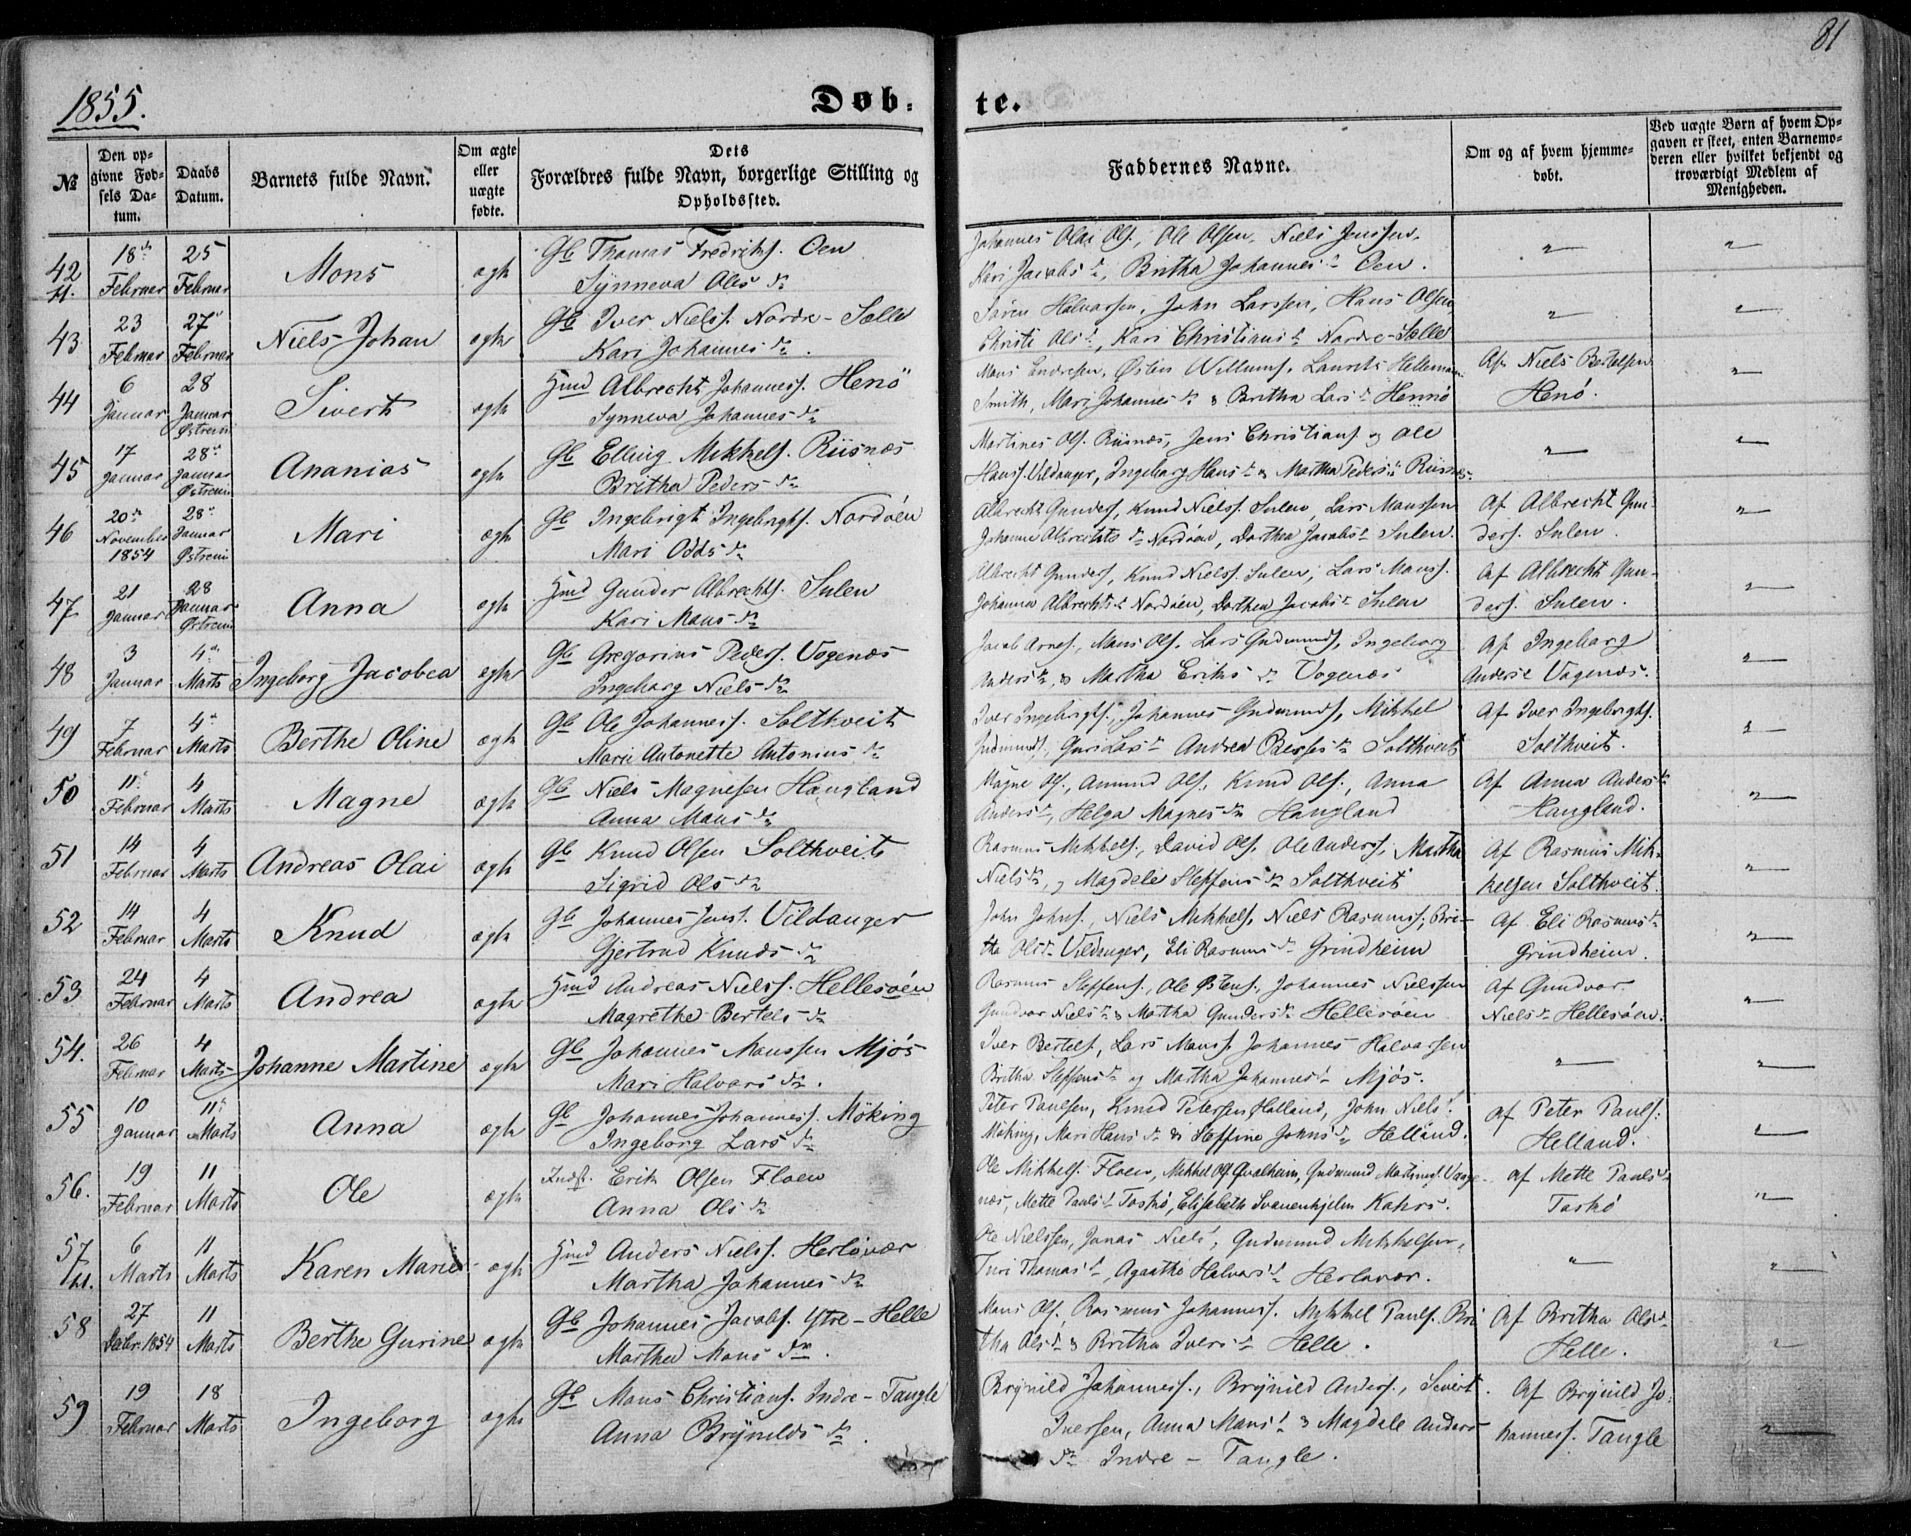 81
1855.
Døb-
te.
№
Den op-
givne Fød-
sels Da-
tum.
Daabs
Datum.
Barnets fulde Navn.
Om ægte
eller
uægte
fødte.
Dets
Forældres fulde Navn, borgerlige Stilling og
Opholdssted.
Faddernes Navne.
Om og af hvem hjemme-
døbt.
Ved uægte Børn af hvem Op-
gaven er skeet, enten Barnemo-
deren eller hvilket bekjendt og
troværdigt Medlem af
Menigheden.
42 18de Februar 25 Februar Mons ægte Gb Thomas Fredriks. Oen
Synneva Ols dr
Johannes Olai Ols., Ole Olsen, Niels Jenssen,
Kari Jacobs dr, Britha Johannes dr Oen.
43 23 Februar 27 Februar Niels Johan ægte Gb Iver Nielss. Nordre-Sælle
Kari Johannes dr.
Søren Halvorsen, John Larssen, Hans Olsen
Christi Ols dr, Kari Christians dr Nordre-Sælle
44 6 Januar 28 Januar Østreim Sivert ægte Hmd Albrecht Johanness. Henö
Synneva Johannes dr
Mons Endresen, Østen Willums., Laurits Helleman
Smith, Mari Johannes dr & Britha Lars dr Hennø
Af Niels Bertelsen
Henö.
45 17 Januar 28 Januar Østreim Ananias ægte Gb Elling Mikkels. Riisnæs
Britha Peders dr
Martines Ols. Riisnæs, Jens Christians. og Ole
Hanss. Vildanger, Ingeborg Hans dr & Martha Peders dr Riisnæs.
46 20de November 1854 28 Januar Østreim Mari ægte Gb Ingebrigt Ingebrights. Nordöen
Mari Odds dr
Albrecht Gunders., Knud Nielss. Sulen, Lars Monssen
Johanne Albrechts dr Nordöen, Dorthea Jacobs dr Sulen.
Af Albrecht Gun-
ders. Sulen.
47 21 Januar 28 Januar Østreim Anna ægte Hmd Gunder Albrechts. Sulen
Kari Mons dr
Albrecht Gunders., Knud Nielss. Sulen, Lars Mons.
Johanne Albrechts dr Nordöen, Dorthea Jacobs dr Sulen
Af Albrecht Gun-
ders. Sulen.
48 3 Januar 4de Marts Ingeborg Jacobea ægte Gb Gregorius Peders. Vogenæs
Ingeborg Niels dr
Jacob Arnes., Mons Ols., Lars Gudmunds., Ingeborg
Anders dr, & Martha Eriks dr Vogenæs
Af Ingeborg
Anders dr Vogenæs.
49 7 Februar 4 Marts Berthe Oline ægte Gb Ole Johanness. Solthveit
Marie Antonette Antonius dr
Iver Ingebrigts., Johannes Gudmunds., Mikkel
Gudmunds., Guri Lars dr Andrea Berjes dr Solthveit
Af Iver Ingebrigts.
Solthveit.
50 11 Februar 4 Marts Magne ægte Gb Niels Magnesen Haugland
Anna Mons dr
Magne Ols., Amund Ols., Knud Ols., Anna
Anders dr, Helga Magnes dr Haugland
Af Anna Anders dr
Haugland.
51 14 Februar 4 Marts Andreas Olai ægte Gb Knud Olsen Solthveit
Sigrid Ols dr
Rasmus Mikkels., David Ols., Ole Anders., Martha
Niels dr, og Magdele Steffens dr Solthveit
Af Rasmus Mik-
kelsen Solthveit.
52 14 Februar 4 Marts Knud ægte Gb Johannes Jons. Vildanger
Gjertrud Knuds dr
John Johns., Niels Mikkels., Niels Rasmuss., Bri-
tha Ols dr Vildanger, Eli Rasmus dr Grindheim
Af Eli Rasmus dr
Grindheim.
53 24 Februar 4 Marts Andrea ægte Hmd Andreas Nielss. Hellesøen
Magrethe Bertels dr
Rasmus Steffens., Ole Østens., Johannes Nielssen
Gundvor Niels dr & Martha Gunders dr Hellesøen
Af Gundvor
Niels dr Hellesøen.
54. 26 Februar 4 Marts Johanne Martine ægte Gb Johannes Monssen Mjøs
Mari Halvors dr.
Iver Bertels., Lars Mons., Johannes Halvorsen
Britha Steffens dr og Martha Johannes dr Mjøs.
55 10 Januar 11 Marts Anna ægte Gb Johannes Johanness. Möking
Ingeborg Lars dr
Peter Paulsen, Knud Petersen Helland, John Niels.
Möking, Mari Hans dr & Steffine Johns dr Helland.
Af Peter Pauls.
Helland.
56. 19 Februar 11 Marts Ole ægte Indst. Erik Olsen Floen
Anna Ols dr
Ole Mikkels. Floen, Mikkel Ols. Qvalheim, Gudmund Martinus. Voge-
næs, Mette Pauls dr Toskö, Elisabeth Svanenhjelm Kahrs.
Af Mette Pauls dr
Toskö
57 6 Marts 11 Marts Karen Marie ægte Hmd Anders Nielss. Herløvær
Martha Johannes dr
Ole Nielssen, Jonas Niels., Gudmund Mikkelsen,
Turi Thomas dr, Agaathe Halvors dr Herløvær.
58 27 Decbr. 1854 11 Marts Berthe Gurine ægte Gb Johannes Jacobs. Ytre-Helle
Marthe Mons dr.
Mons Ols., Rasmus Johanness., Mikkel Pauls., Bri
tha Ols dr & Britha Ivers dr Helle.
Af Britha Ols dr
Helle.
59 19 Februar 18 Marts Ingeborg ægte Gb Mons Christians. Indre-Tangle
Anna Brynilds dr
Brynild Johanness., Brynild Anders., Sivert
Iversen, Anna Mons dr & Magdele Anders
dr Indre-Tangle.
Af Brynild Jo-
hanness. Tangle